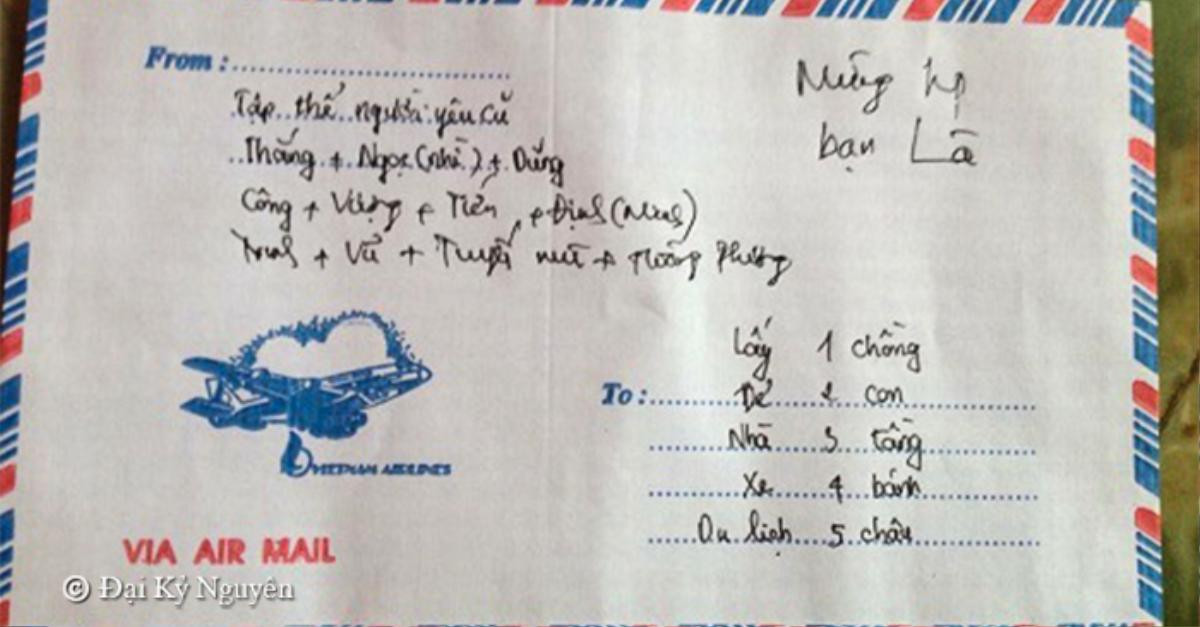 From :
Tập thể người yêu cũ
Thắng + Ngọc (nhè) + Dũng
Công + Vượng + Tiến + Định (Minh)
Trinh + Vũ + Tuyết mũi + Phương
Mừng hp
bạn Là
Lấy 1 chồng
To : Đẻ 2 con
Nhà 3 tầng
Xe 4 bánh
Du lịch 5 châu
VIETNAM AIRLINES
VIA AIR MAIL
© Đại Kỷ Nguyên